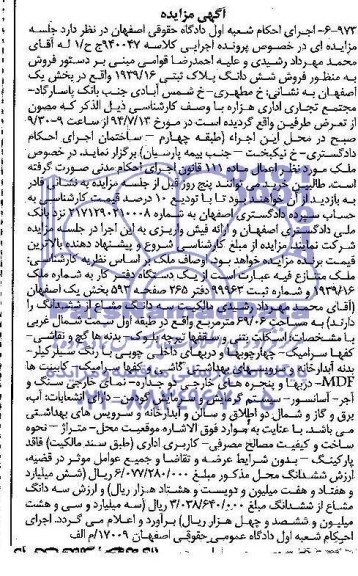 آگهی مزایده
۶-۹۷۳- اجرای احکام شعبه اول دادگاه حقوقی اصفهان در نظر دارد جلسه
مزایده ای در خصوص پرونده اجرایی کلاسه ۹۴۰۰۴۷ج ح/۱ له آقای
محمد مهرداد رشیدی و علیه احمدرضا قوامی مبنی بر دستور فروش
به منظور فروش شش دانگ پلاک ثبتی ۱۹۳۹/۱۶ واقع در بخش یک
اصفهان به نشانی: خ مطهری- خ شمس آبادی جنب بانک پاسارگاد-
مجتمع تجاری اداری هزاره با وصف کارشناسی ذیل الذکر که مصون
از تعرض طرفین واقع گردیده است در مورخ ۹۴/۷/۱۳ از ساعت ۹-۹/۳۰
صبح در محل این اجراء (طبقه چهارم – ساختمان اجرای احکام
دادگستری- خ نیکبخت – جنب بیمه پارسیان) برگزار نماید. در خصوص
ملک مورد مزایده اعمال ماده قانون اجرای احکام مدنی صورت گرفته
است. طالبین خریداری می توانند پنج روز قبل از جلسه مزایده به نشانی فوق
به بازدید از ملک خواهند بود تا با تودیع ۱۰ درصد قیمت کارشناسی به
حساب سپرده دادگستری اصفهان به شماره ۲۱۷۱۲۹۰۲۱۰۰۰۸ نزد بانک
ملی دادگستری اصفهان و ارائه فیش واریزی به این اجرا در جلسه مزایده
شرکت نمایند. مزایده از مبلغ کارشناسی شروع و پیشنهاد دهنده بالاترین
قیمت برنده مزایده خواهد بود. اوصاف ملک بر اساس نظریه کارشناسی:
ملک متنازع فیه عبارت است از یک دستگاه دفتر کار به شماره ملک
۱۹۳۹/۱۶ و شماره ثبت ۹۹۹۶۳ دفتر ۲۶۵ صفحه ۵۹۲ بخش یک اصفهان
(آقای محمد مهرداد رشیدی مالکیت سه دانگ مشاع از ششدانگ را
دارند) به مساحت ۶۹/۰۶ مترمربع واقع در طبقه اول سمت شمال غربی
با مشخصات: اسکلت بتنی و سقفها تیرچه بلوک- بدنه ها گچ و نقاشی-
کفها سرامیک- چهارچوبها و دربهای داخلی چوبی با رنگ سیلر کیلر-
بدنه آبدارخانه و سرویسهای بهداشتی کاشی و کفها سرامیک- کابینت ها
MDF- دربها و پنجره های خارجی دو جداره- نمای خارجی سنگ و
آجر- آسانسور- سیستم گرمایش و سرمایش دارای انشعابات: آب،
برق و گاز و شمال دو اطلاق و سالن و آبدارخانه و سرویس های بهداشتی
می باشد. با عنایت به موارد فوق الاشاره موقعیت محل- متراژ – نحوه
ساخت و کیفیت مصالح مصرفی- کاربری اداری (طبق سند مالکیت) فاقد
پارکینگ – بدون شرایط عرضه و تقاضا و جمیع عوامل موثر در قضیه،
ارزش ششدانگ محل مذکور مبلغ ۶/۰۷۷/۲۸۰/۰۰۰ ریال (شش میلیارد
و هفتاد و هفت میلیون و دویست و هشتاد هزار ریال) و ارزش سه دانگ
مشاع از ششدانگ مبلغ ۳/۰۳۸/۶۴۰/۰۰۰ ریال (سه میلیارد و سی و هشت
میلیون و ششصد و چهل هزار ریال) برآورد و اعلام می گردد. اجرای
احکام شعبه اول دادگاه عمومی حقوقی اصفهان ۱۷۰۰۹/م الف